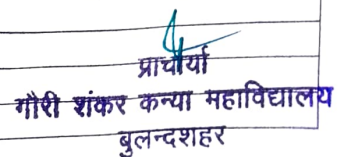 प्राचार्या
गौरी शंकर कन्या महाविद्यालय
बुलन्दशहर